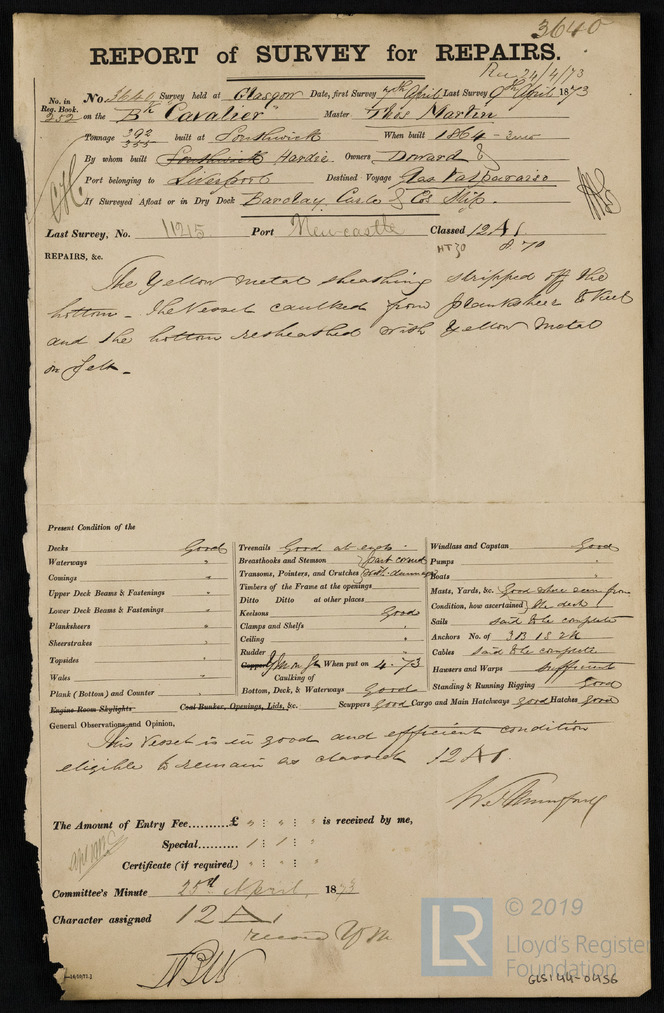 3640
REPORT of SURVEY for REPAIRS.
Rec 24/4/73
No. in Reg. Book. No. 3640 Survey held at Glasgow Date, first Survey 7th April Last Survey 9th April 1873
252 on the Bk "Cavalier" Master Thos Martin
Tonnage 392 355 built at Southwick When built 1864
By whom built Southwick Hardie Owners Doward &
Port belonging to Liverpool Destined Voyage Valparaiso
If Surveyed Afloat or in Dry Dock Barclay, Curle & Cos Slip.
Last Survey, No. 11215 Port Newcastle Classed 12A1
HT 70 8.70
REPAIRS, &c.
The Yellow metal sheathing stripped off the
bottom - The Vessel caulked from planksheer to Keel
and the bottom resheathed with Yellow Metal
on Felt -
Present Condition of the
Decks Good
Waterways "
Comings "
Upper Deck Beams & Fastenings "
Lower Deck Beams & Fastenings "
Planksheers "
Sheerstrakes "
Topsides "
Wales "
Plank (Bottom) and Counter "
Engine Room Skylights
Treenails Good
Breasthooks and Stemson
Transoms, Pointers, and Crutches
Timbers of the Frame at the openings
Ditto Ditto at other places
Keelsons Good
Clamps and Shelfs "
Ceiling "
Rudder "
Copper When put on 4.73
Caulking of
Bottom, Deck, & Waterways Good
Coal Bunker, Openings, Lids, &c. Scuppers Good Cargo and Main Hatchways good Hatches good
Windlass and Capstan Good
Pumps "
Boats "
Masts, Yards, &c. Good where seen from
Condition, how ascertained the deck
Sails said to be complete
Anchors No. of 3B 1S 2K
Cables said to be complete
Hawsers and Warps Sufficient
Standing & Running Rigging Good
General Observations and Opinion,
This Vessel is in good and efficient condition
eligible to remain as classed 12A1.
The Amount of Entry Fee.......... £ " : " : " is received by me,
Special.......... 1 : 1 : "
Certificate (if required) " : " : "
Committee's Minute 25th April, 1873
Character assigned 12 A 1
record YM
LR © 2019
Lloyd's Register
Foundation
GLS144-0456